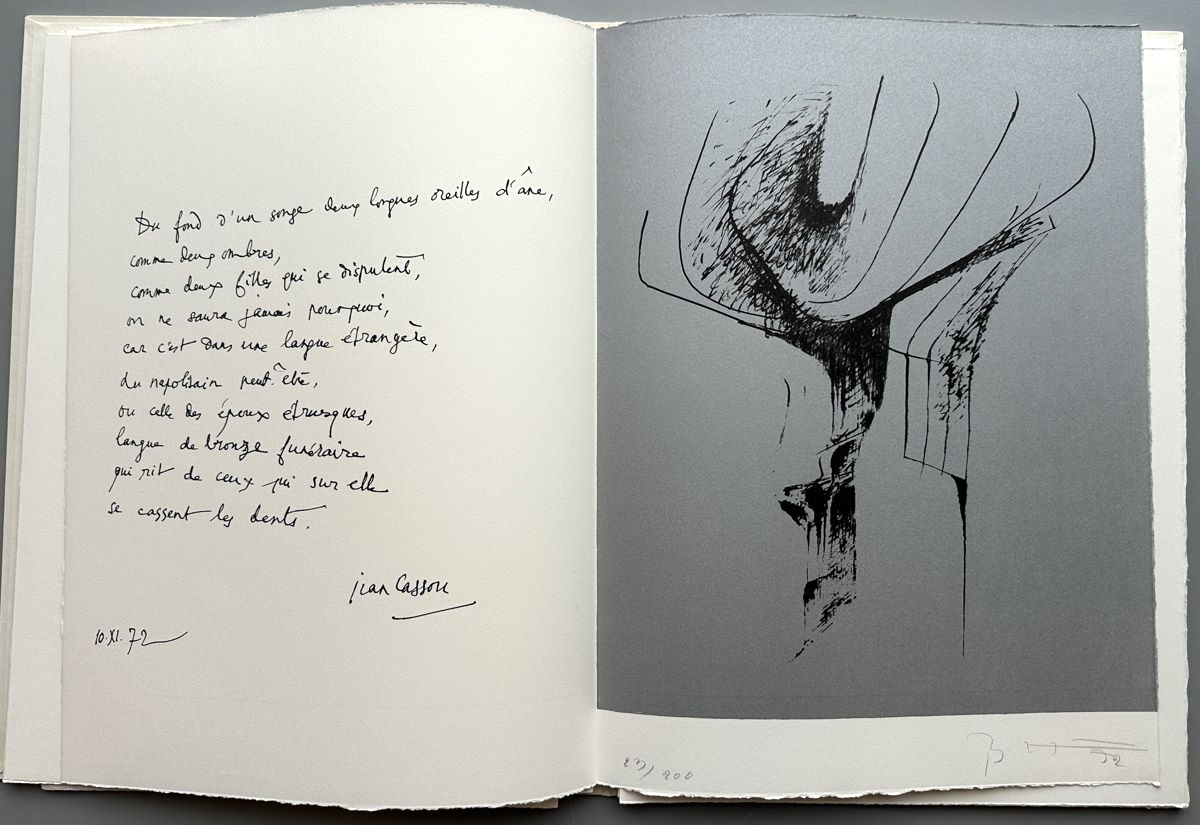 Du fond d'un songe deux longues oreilles d'âne,
comme deux ombres,
comme deux filles qui se disputent,
on ne saura jamais pourquoi,
car c'est dans une langue étrangère,
du napolitain peut-être,
ou celle des époux étrusques,
langue de bronze funéraire
qui rit de ceux qui sur elle
se cassent les dents.
jean Cassou
10.XI.72
/200